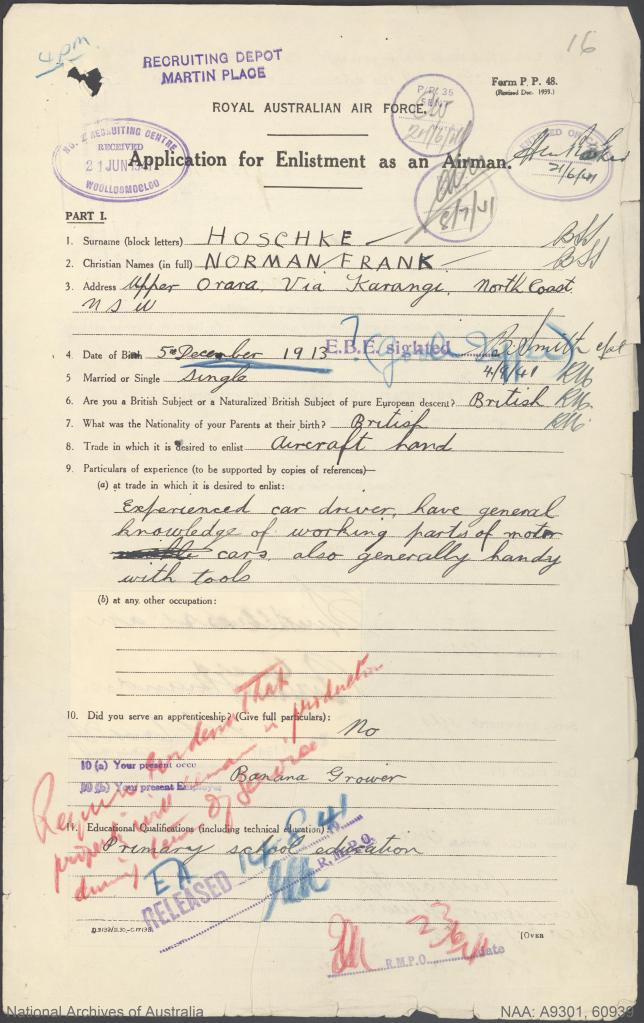 4 pm
16
RECRUITING DEPOT
MARTIN PLACE
Form P.P. 48.
(Revised Dec. 1939.)
P/P. 35
SENT
20/6/41
ROYAL AUSTRALIAN AIR FORCE.
No. 2 RECRUITING CENTRE
RECEIVED
21 JUN 1941
WOOLLOOMOOLOO
Application for Enlistment as an Airman.
21/6/41
8/7/41
PART I.
1. Surname (block letters) HOSCHKE
2. Christian Names (in full) NORMAN FRANK
3. Address Upper Orara, Via Karangi, North Coast,
N S W
E.B.E. sighted
4/8/41
4 Date of Birth 5th December 1913
5 Married or Single single
6. Are you a British Subject or a Naturalized British Subject of pure European descent? British
7. What was the Nationality of your Parents at their birth? British
8. Trade in which it is desired to enlist aircraft hand
9. Particulars of experience (to be supported by copies of references)—
(a) at trade in which it is desired to enlist:
Experienced car driver, have general
knowledge of working parts of motor
cars. also generally handy
with tools
(b) at any other occupation:
10. Did you serve an apprenticeship? (Give full particulars):
No
10 (a) Your present occu
Banana Grower
10 (b) Your present Employer
Require evidence that
property will remain in production
during term of service
11. Educational Qualifications (including technical education):
Primary school education
EA 14.8.41
RELEASED
R.M.P.O.
23/6/41
R.M.P.O. date
[OVER
National Archives of Australia
NAA: A9301, 60939